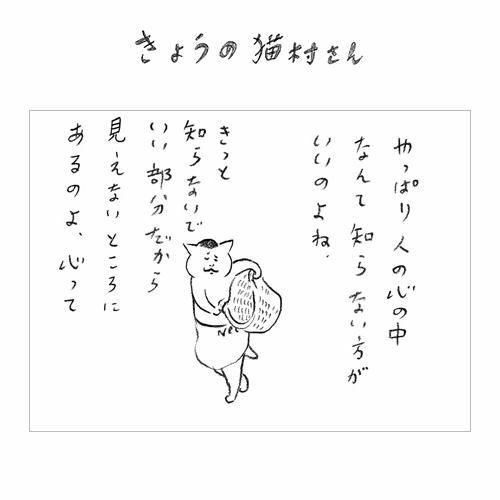 きょうの猫村さん
やっぱり人の心の中
なんて知らない方が
いいのよね、
きっと
知らないで
いい部分だから
見えないところに
あるのよ、心って
Neko